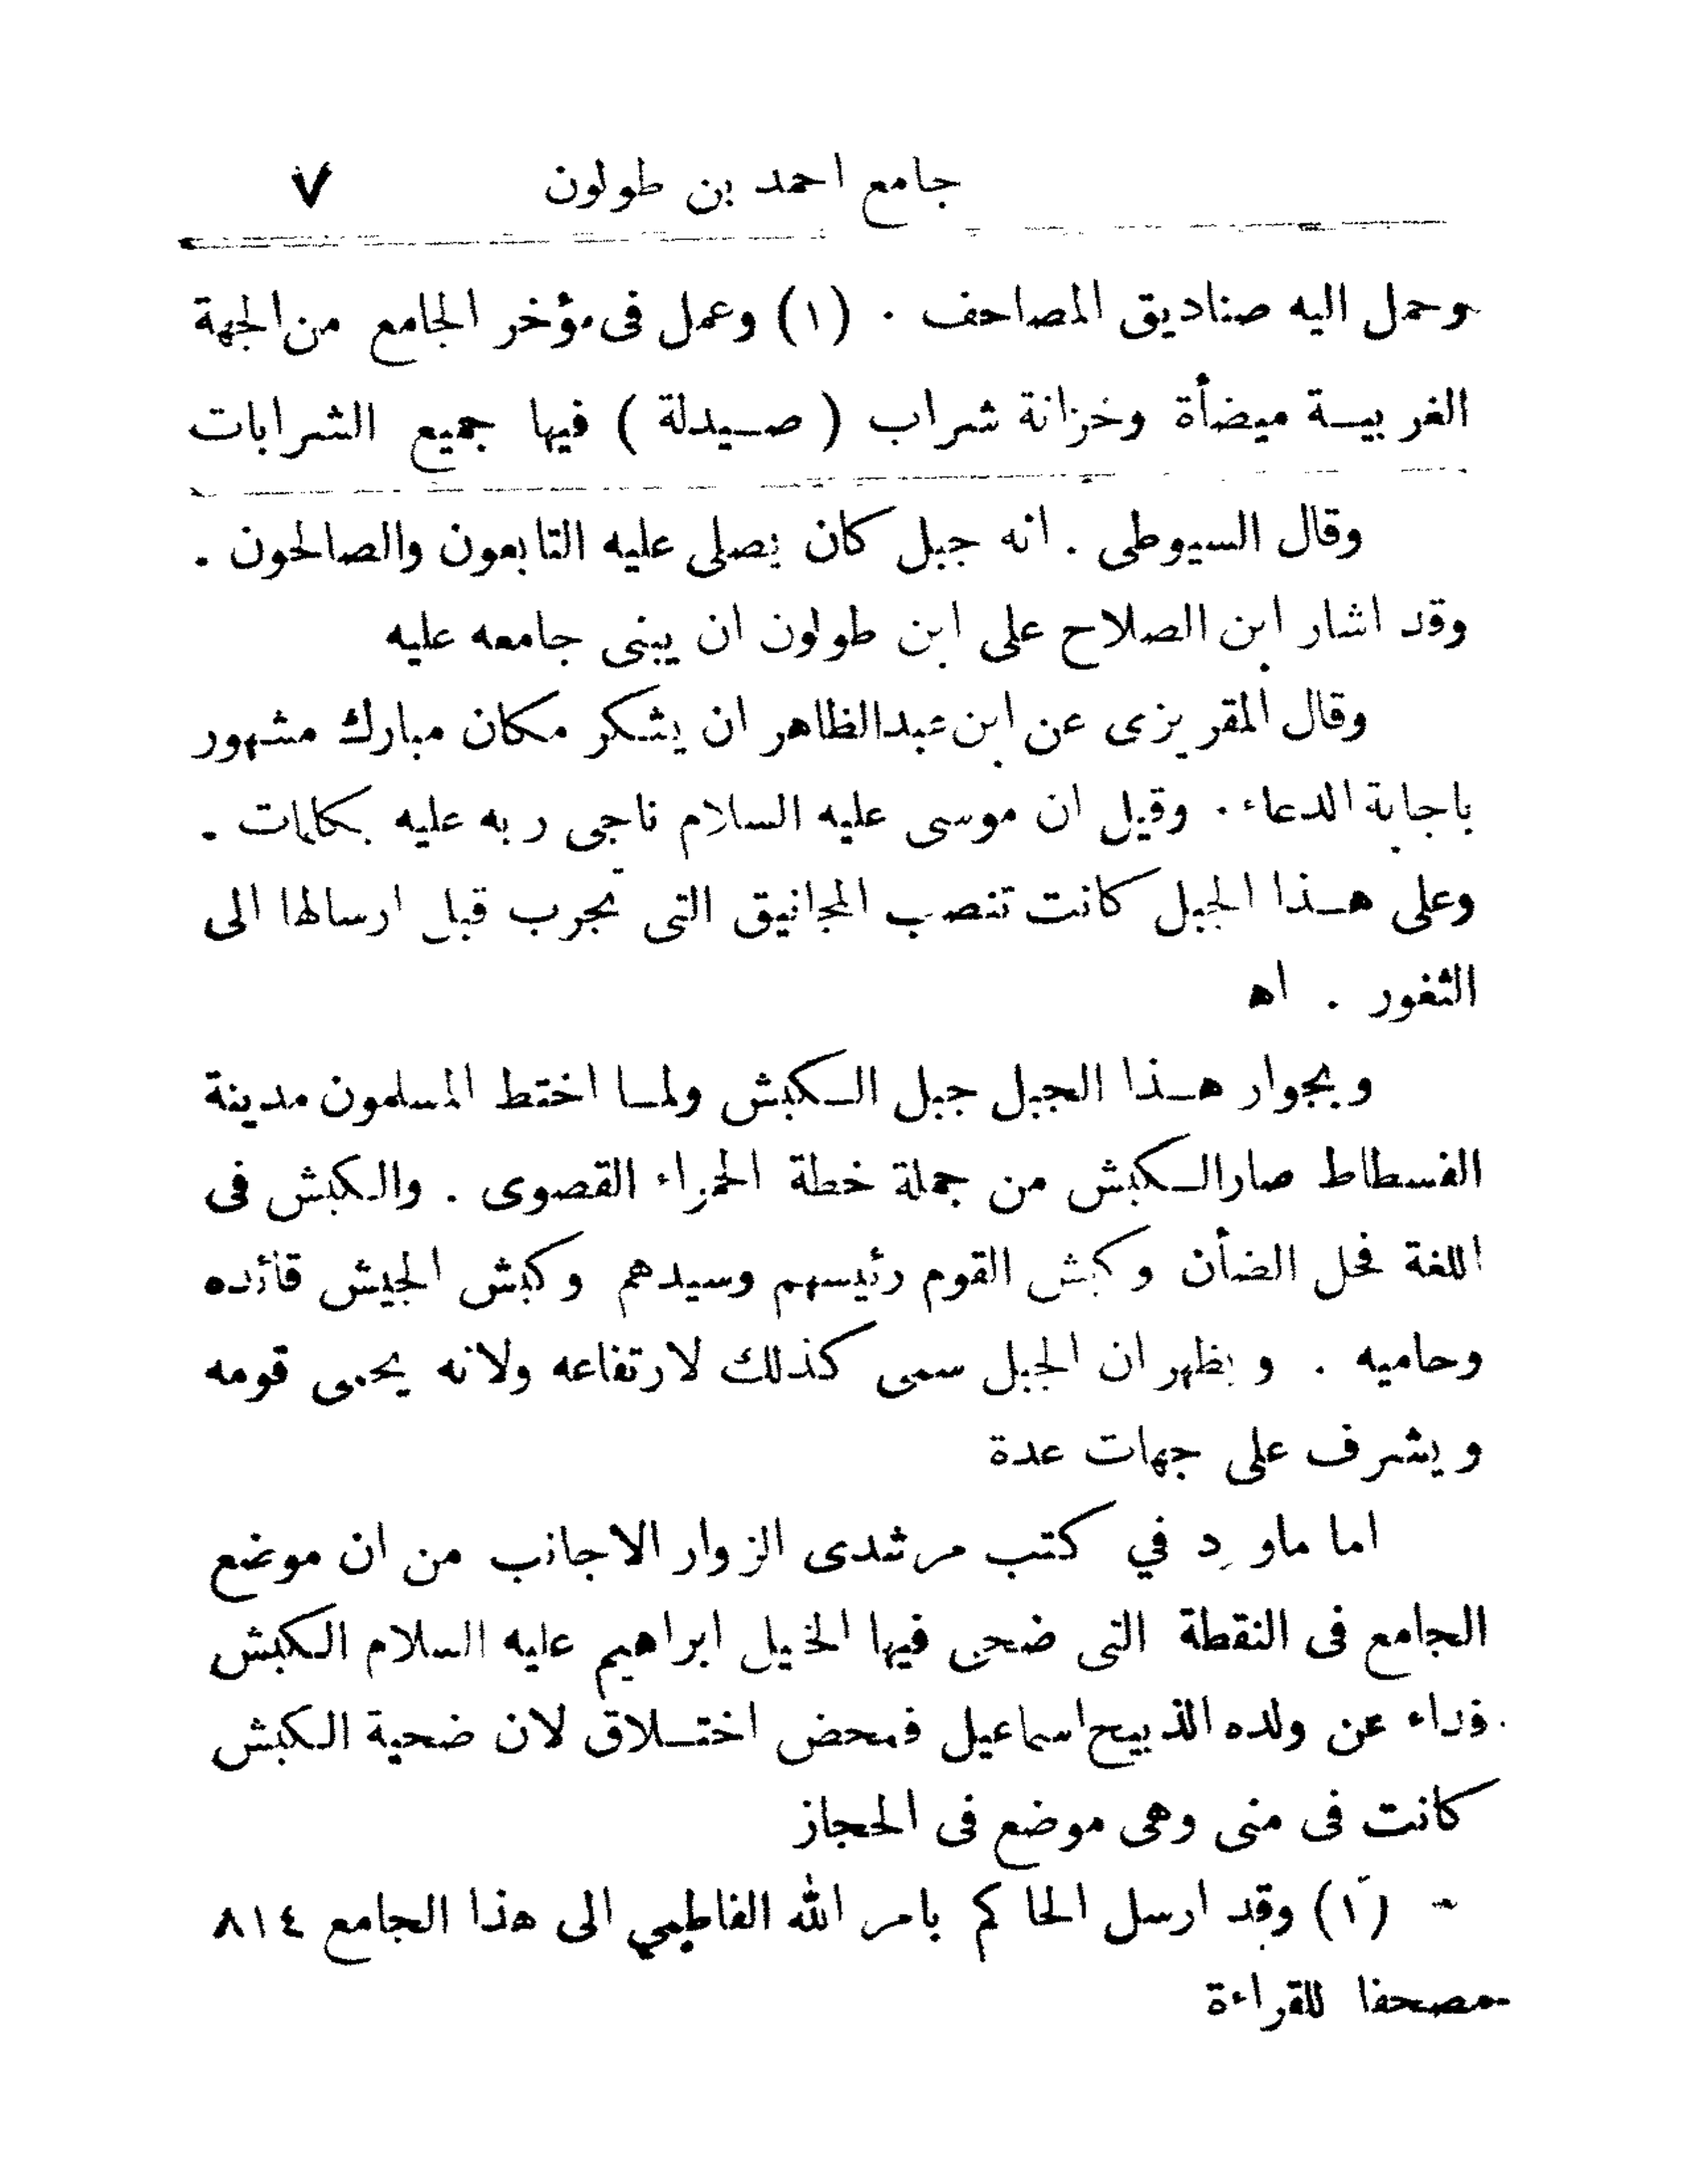 جامع احمد بن طولون ٧
وحمل اليه صناديق المصاحف . (١) وعمل فى مؤخر الجامع من الجهة
الغربيـة ميضأة وخزانة شراب ( صـيدلة ) فيها جميع الشرابات
وقال السيوطى . انه جبل كان يصلى عليه التابعون والصالحون .
وقد اشار ابن الصلاح على ابن طولون ان يبنى جامعه عليه
وقال المقريزى عن ابن عبدالظاهر ان يشكر مكان مبارك مشهور
باجابة الدعاء . وقيل ان موسى عليه السلام ناجى ربه عليه بكلمات .
وعلى هـذا الجبل كانت تنصب المجانيق التى تجرب قبل ارسالها الى
الثغور . اه
وبجوار هـذا الجبل جبل الـكبش ولمـا اختط المسلمون مدينة
الفسطاط صار الـكبش من جملة خطة الحمراء القصوى . والكبش فى
اللغة فحل الضأن وكبش القوم رئيسهم وسيدهم وكبش الجيش قائده
وحاميه . ويظهر ان الجبل سمى كذلك لارتفاعه ولانه يحمى قومه
ويشرف على جهات عدة
اما ماورد في كتب مرشدى الزوار الاجانب من ان موضع
الجامع فى النقطة التى ضحى فيها الخليل ابراهيم عليه السلام الكبش
فداء عن ولده الذبيح اسماعيل فمحض اختـلاق لان ضحية الكبش
كانت فى منى وهى موضع فى الحجاز
(١) وقد ارسل الحاكم بامر الله الفاطمي الى هذا الجامع ٨١٤
مصحفا للقراءة